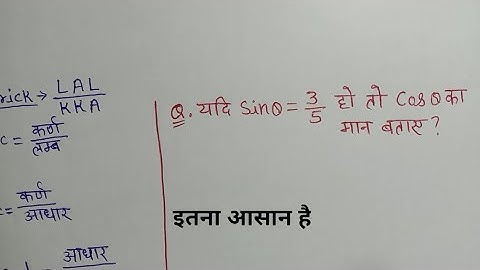 rick → LAL
KKA
c = कर्ण
लम्ब
c = कर्ण
आधार
आधार
Q. यदि sinθ = 3/5 हो तो cosθ का
मान बताए ?
इतना आसान है